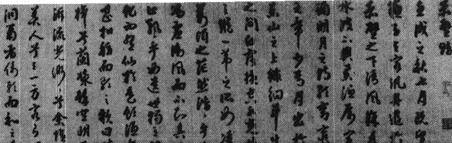 赤壁賦
壬戌之秋七月既望
蘇子與客泛舟遊於
赤壁之下清風徐來
水波不興舉酒屬客
誦明月之詩歌窈窕
之章少焉月出於
東山之上徘徊斗牛
之間白露橫江水光接
天縱一葦之所如凌
萬頃之茫然浩浩乎如
馮虛御風而不知其所
止飄飄乎如遺世獨立
羽化而登仙於是飲酒樂
甚扣舷而歌之歌曰桂
棹兮蘭槳擊空明兮
泝流光渺渺兮余懷望
美人兮天一方客有吹
洞簫者倚歌而和之